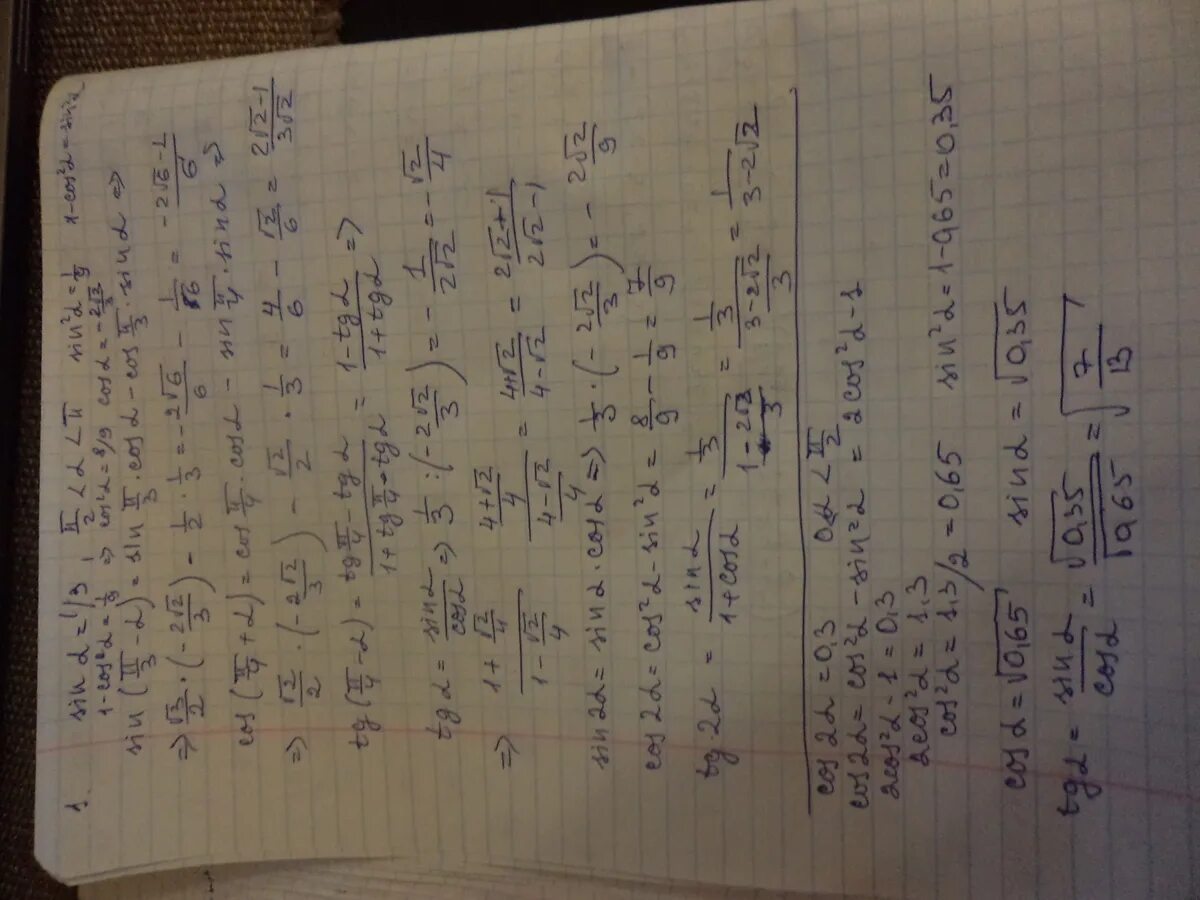 1. sin α = 1/3, π/2 < α < π  sin²α = 1/9  1-cos²α = sin²α
1-cos²α = 1/9 => cos²α = 8/9 cos α = -2√2/3
sin(π/3 - α) = sin π/3 · cos α - cos π/3 · sin α =>
=> √3/2 · (-2√2/3) - 1/2 · 1/3 = -2√6/6 - 1/6 = -2√6-1/6
cos(π/4 + α) = cos π/4 · cos α - sin π/4 · sin α =>
=> √2/2 · (-2√2/3) - √2/2 · 1/3 = 4/6 - √2/6 = 2√2-1/3√2
tg(π/4 - α) = tg π/4 - tg α / 1 + tg π/4 · tg α = 1 - tg α / 1 + tg α =>
tg α = sin α / cos α => 1/3 : (-2√2/3) = - 1/2√2 = - √2/4
=> 1 + √2/4 / 1 - √2/4 = 4+√2/4 / 4-√2/4 = 4+√2 / 4-√2 = 2√2+1 / 2√2-1
sin 2α = sin α · cos α => 1/3 · (-2√2/3) = - 2√2/9
cos 2α = cos²α - sin²α = 8/9 - 1/9 = 7/9
tg 2α = sin α / 1 + cos α = 1/3 / 1 - 2√2/3 = 1/3 / 3-2√2/3 = 1 / 3-2√2
cos 2α = 0,3  0<α<π/2
cos 2α = cos²α - sin²α = 2cos²α - 1
2cos²α - 1 = 0,3
2cos²α = 1.3
cos²α = 1.3/2 = 0,65  sin²α = 1-0,65 = 0,35
cos α = √0,65  sin α = √0,35
tg α = sin α / cos α = √0,35 / √0,65 = √7/13